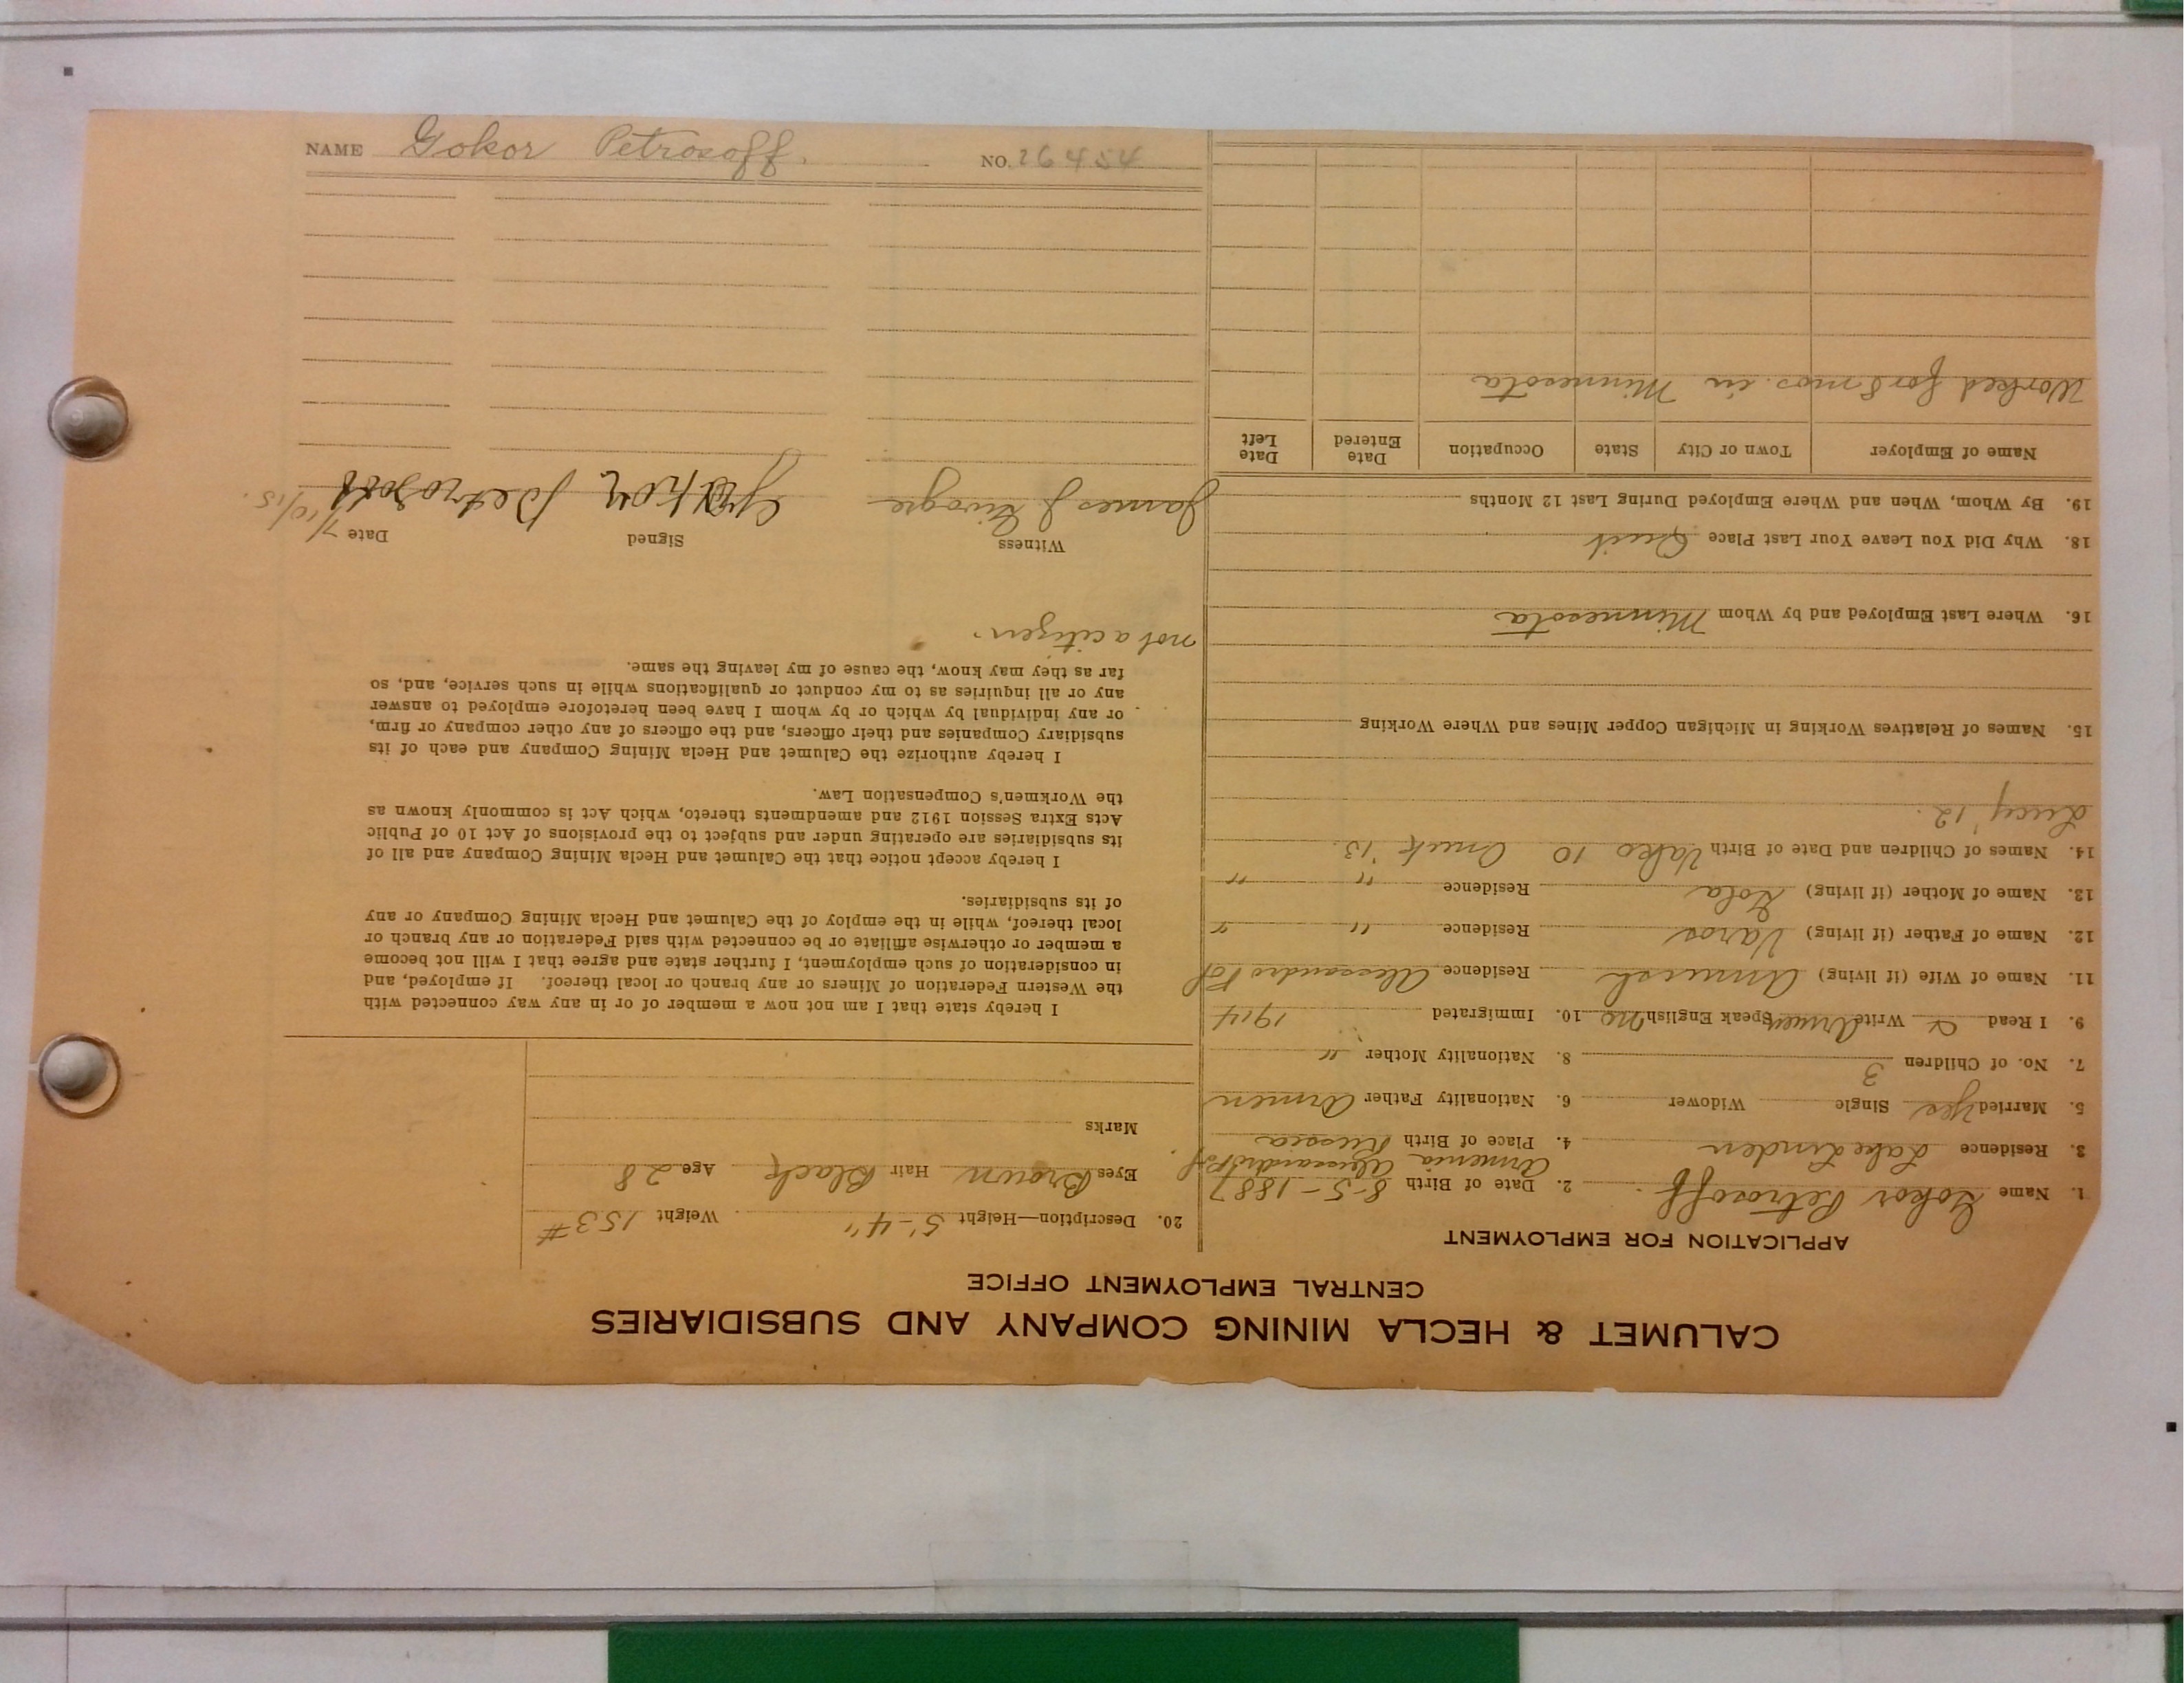 CALUMET & HECLA MINING COMPANY AND SUBSIDIARIES
CENTRAL EMPLOYMENT OFFICE
APPLICATION FOR EMPLOYMENT
1. Name Gokor Petrosoff. 2. Date of Birth 8-5-1887
Armenia Alexandropof
3. Residence Lake Linden 4. Place of Birth Russia
5. Married Yes Single Widower 6. Nationality Father Armen
7. No. of Children 3 8. Nationality Mother "
9. I Read Write Armen Speak English no 10. Immigrated 1914
11. Name of Wife (if living) Residence
12. Name of Father (if living) Varos Residence " "
13. Name of Mother (if living) Residence " "
14. Names of Children and Date of Birth Vako 10 '13.
Lucy '12.
15. Names of Relatives Working in Michigan Copper Mines and Where Working
16. Where Last Employed and by Whom Minnesota
18. Why Did You Leave Your Last Place Quit
19. By Whom, When and Where Employed During Last 12 Months
Name of Employer Town or City State Occupation Date Entered Date Left
Worked for 8 mos. in Minnesota
20. Description—Height 5'-4" Weight 153#
Eyes Brown Hair Black Age 28
Marks
I hereby state that I am not now a member of or in any way connected with
the Western Federation of Miners or any branch or local thereof. If employed, and
in consideration of such employment, I further state and agree that I will not become
a member or otherwise affiliate or be connected with said Federation or any branch or
local thereof, while in the employ of the Calumet and Hecla Mining Company or any
of its subsidiaries.
I hereby accept notice that the Calumet and Hecla Mining Company and all of
its subsidiaries are operating under and subject to the provisions of Act 10 of Public
Acts Extra Session 1912 and amendments thereto, which Act is commonly known as
the Workmen's Compensation Law.
I hereby authorize the Calumet and Hecla Mining Company and each of its
subsidiary Companies and their officers, and the officers of any other company or firm,
or any individual by which or by whom I have been heretofore employed to answer
any or all inquiries as to my conduct or qualifications while in such service, and, so
far as they may know, the cause of my leaving the same.
not a citizen.
Witness Signed Date 7/10/15.
James J. Petrosoff
NAME Gokor Petrosoff. NO. 26454